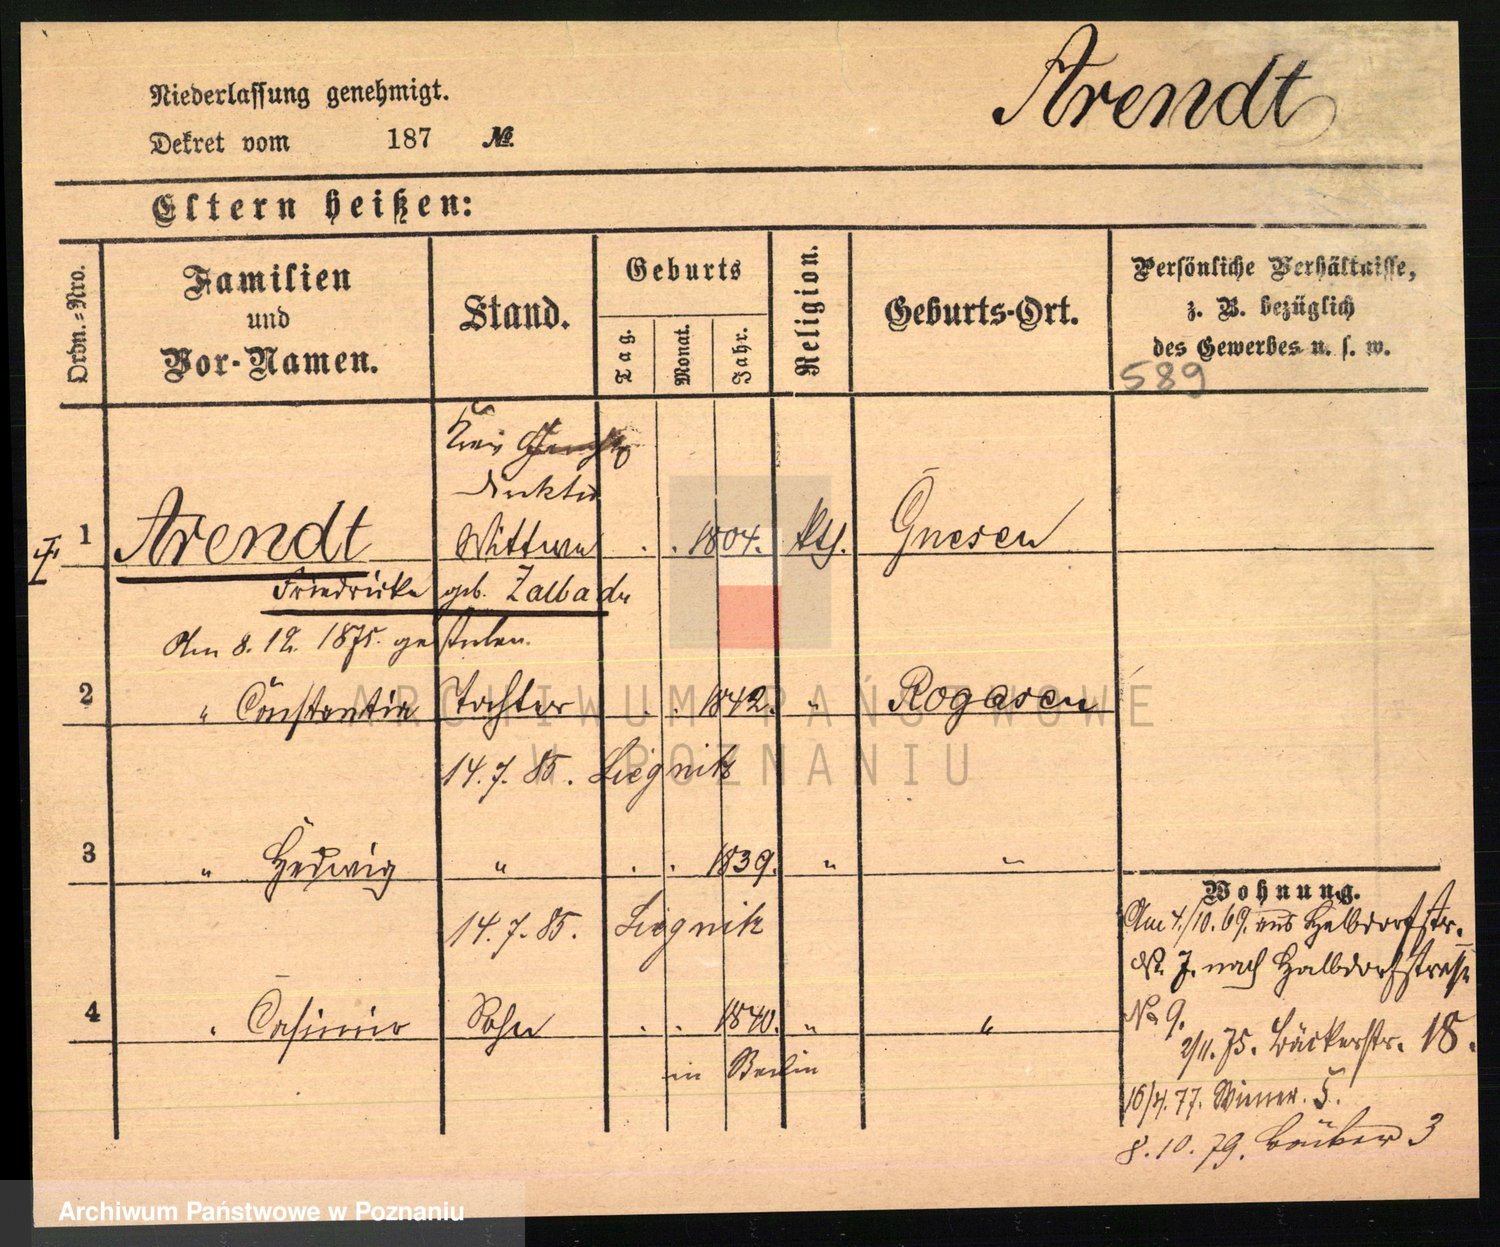 Arendt
Niederlassung genehmigt.
Dekret vom 187 №.
Eltern heißen:
Ordn.-Nro.
Familien
und
Vor-Namen.
Stand.
Geburts
Tag.
Monat.
Jahr.
Religion.
Geburts-Ort.
Persönliche Verhältnisse,
z. B. bezüglich
des Gewerbes u. s. w.
589
Kreis Gerichts
direktor
1 Arendt Wittwe . . 1804. kth. Gnesen
Friedricke geb. Zalbade
Am 8. 12. 1875. gestorben.
2 " Constantia Tochter . . 1842. " Rogasen
14. 7. 85. Liegnitz
3 " Hedwig " . . 1839. " "
14. 7. 85. Liegnitz
4 " Casimir Sohn . . 1840. " "
in Berlin
Wohnung.
Am 4./10. 69. aus Halbdorfstr.
№ 7. nach Halbdorfstrasse
No 9.
2/11. 75. Bäckerstr. 18.
16/4. 77. Wiener. 5.
8. 10. 79. Bäcker 3
ARCHIWUM PAŃSTWOWE
W POZNANIU
Archiwum Państwowe w Poznaniu